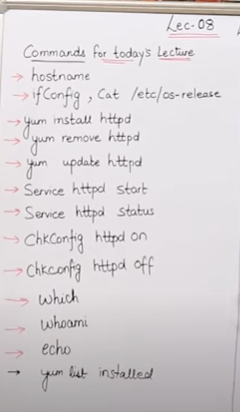 Lec-08
Commands for today's Lecture
→ hostname
→ ifConfig , Cat /etc/os-release
→ yum install httpd
→ yum remove httpd
→ yum update httpd
→ Service httpd start
→ Service httpd status
→ ChkConfig httpd on
→ Chkconfig httpd off
→ which
→ whoami
→ echo
→ yum list installed